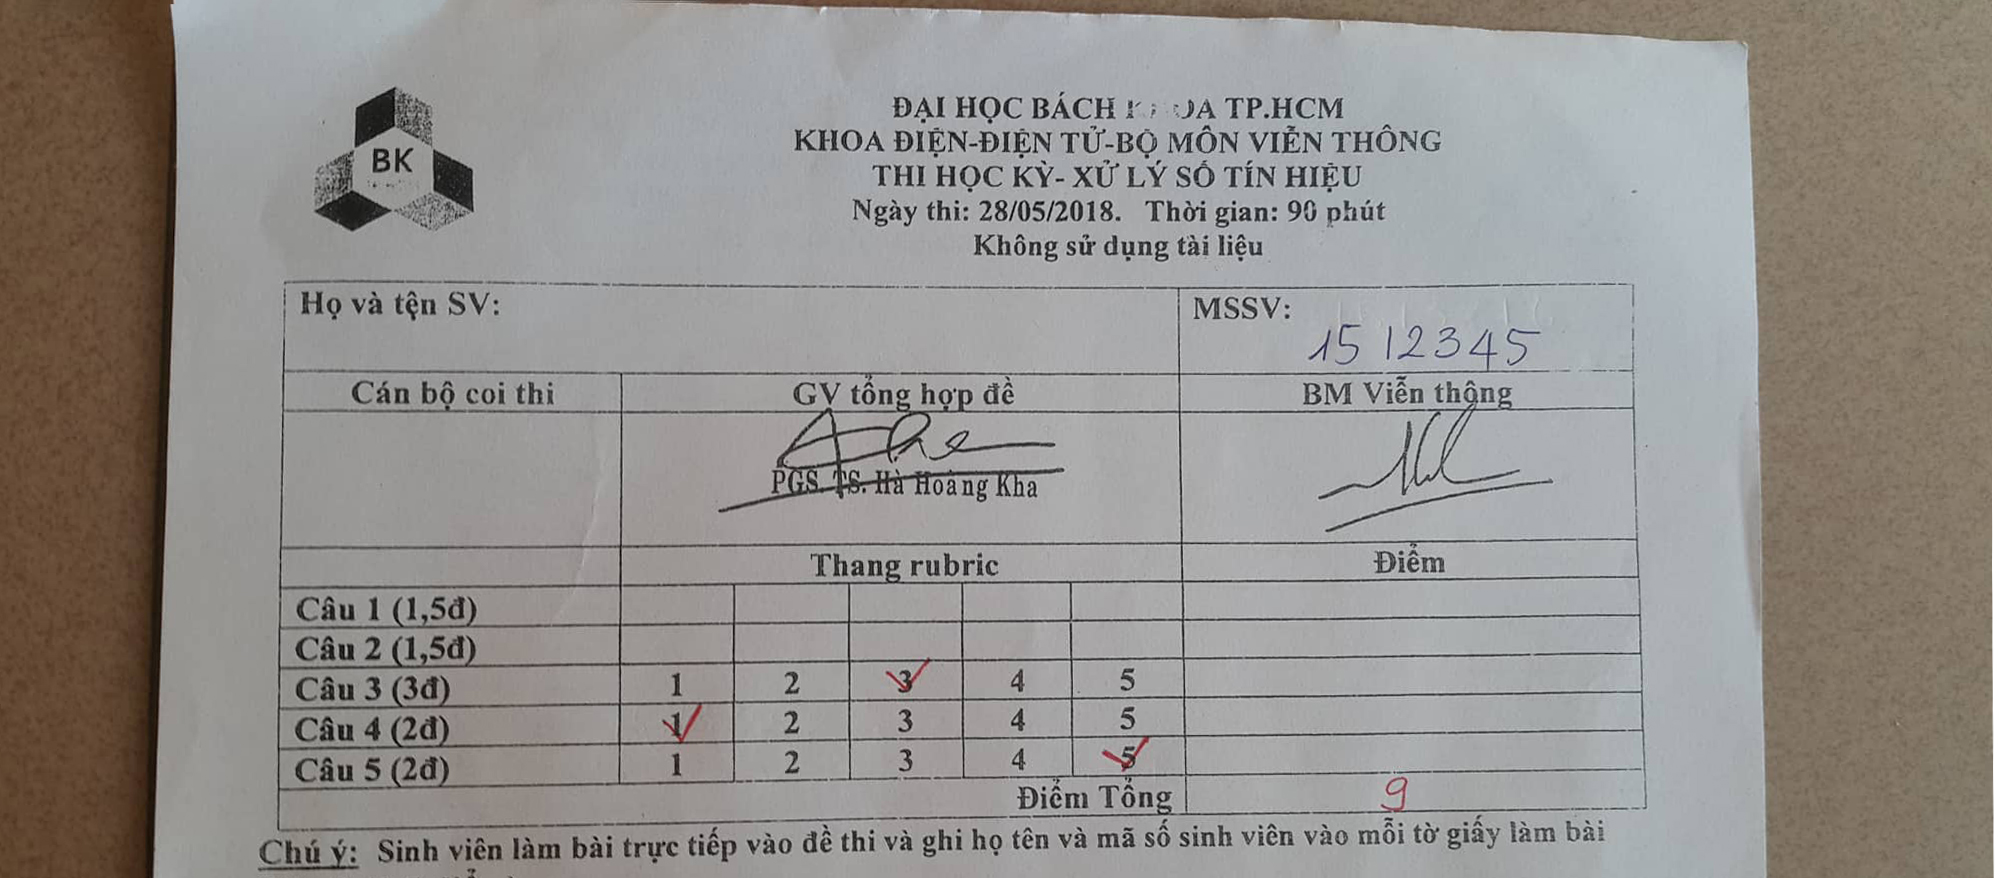 BK
ĐẠI HỌC BÁCH KHOA TP.HCM
KHOA ĐIỆN-ĐIỆN TỬ-BỘ MÔN VIỄN THÔNG
THI HỌC KỲ- XỬ LÝ SỐ TÍN HIỆU
Ngày thi: 28/05/2018. Thời gian: 90 phút
Không sử dụng tài liệu
Họ và tện SV: MSSV:
1512345
Cán bộ coi thi GV tổng hợp đề BM Viễn thông
PGS. TS. Hà Hoàng Kha
Thang rubric Điểm
Câu 1 (1,5đ)
Câu 2 (1,5đ)
Câu 3 (3đ) 1 2 3 4 5
Câu 4 (2đ) 1 2 3 4 5
Câu 5 (2đ) 1 2 3 4 5
Điểm Tổng 9
Chú ý: Sinh viên làm bài trực tiếp vào đề thi và ghi họ tên và mã số sinh viên vào mỗi tờ giấy làm bài